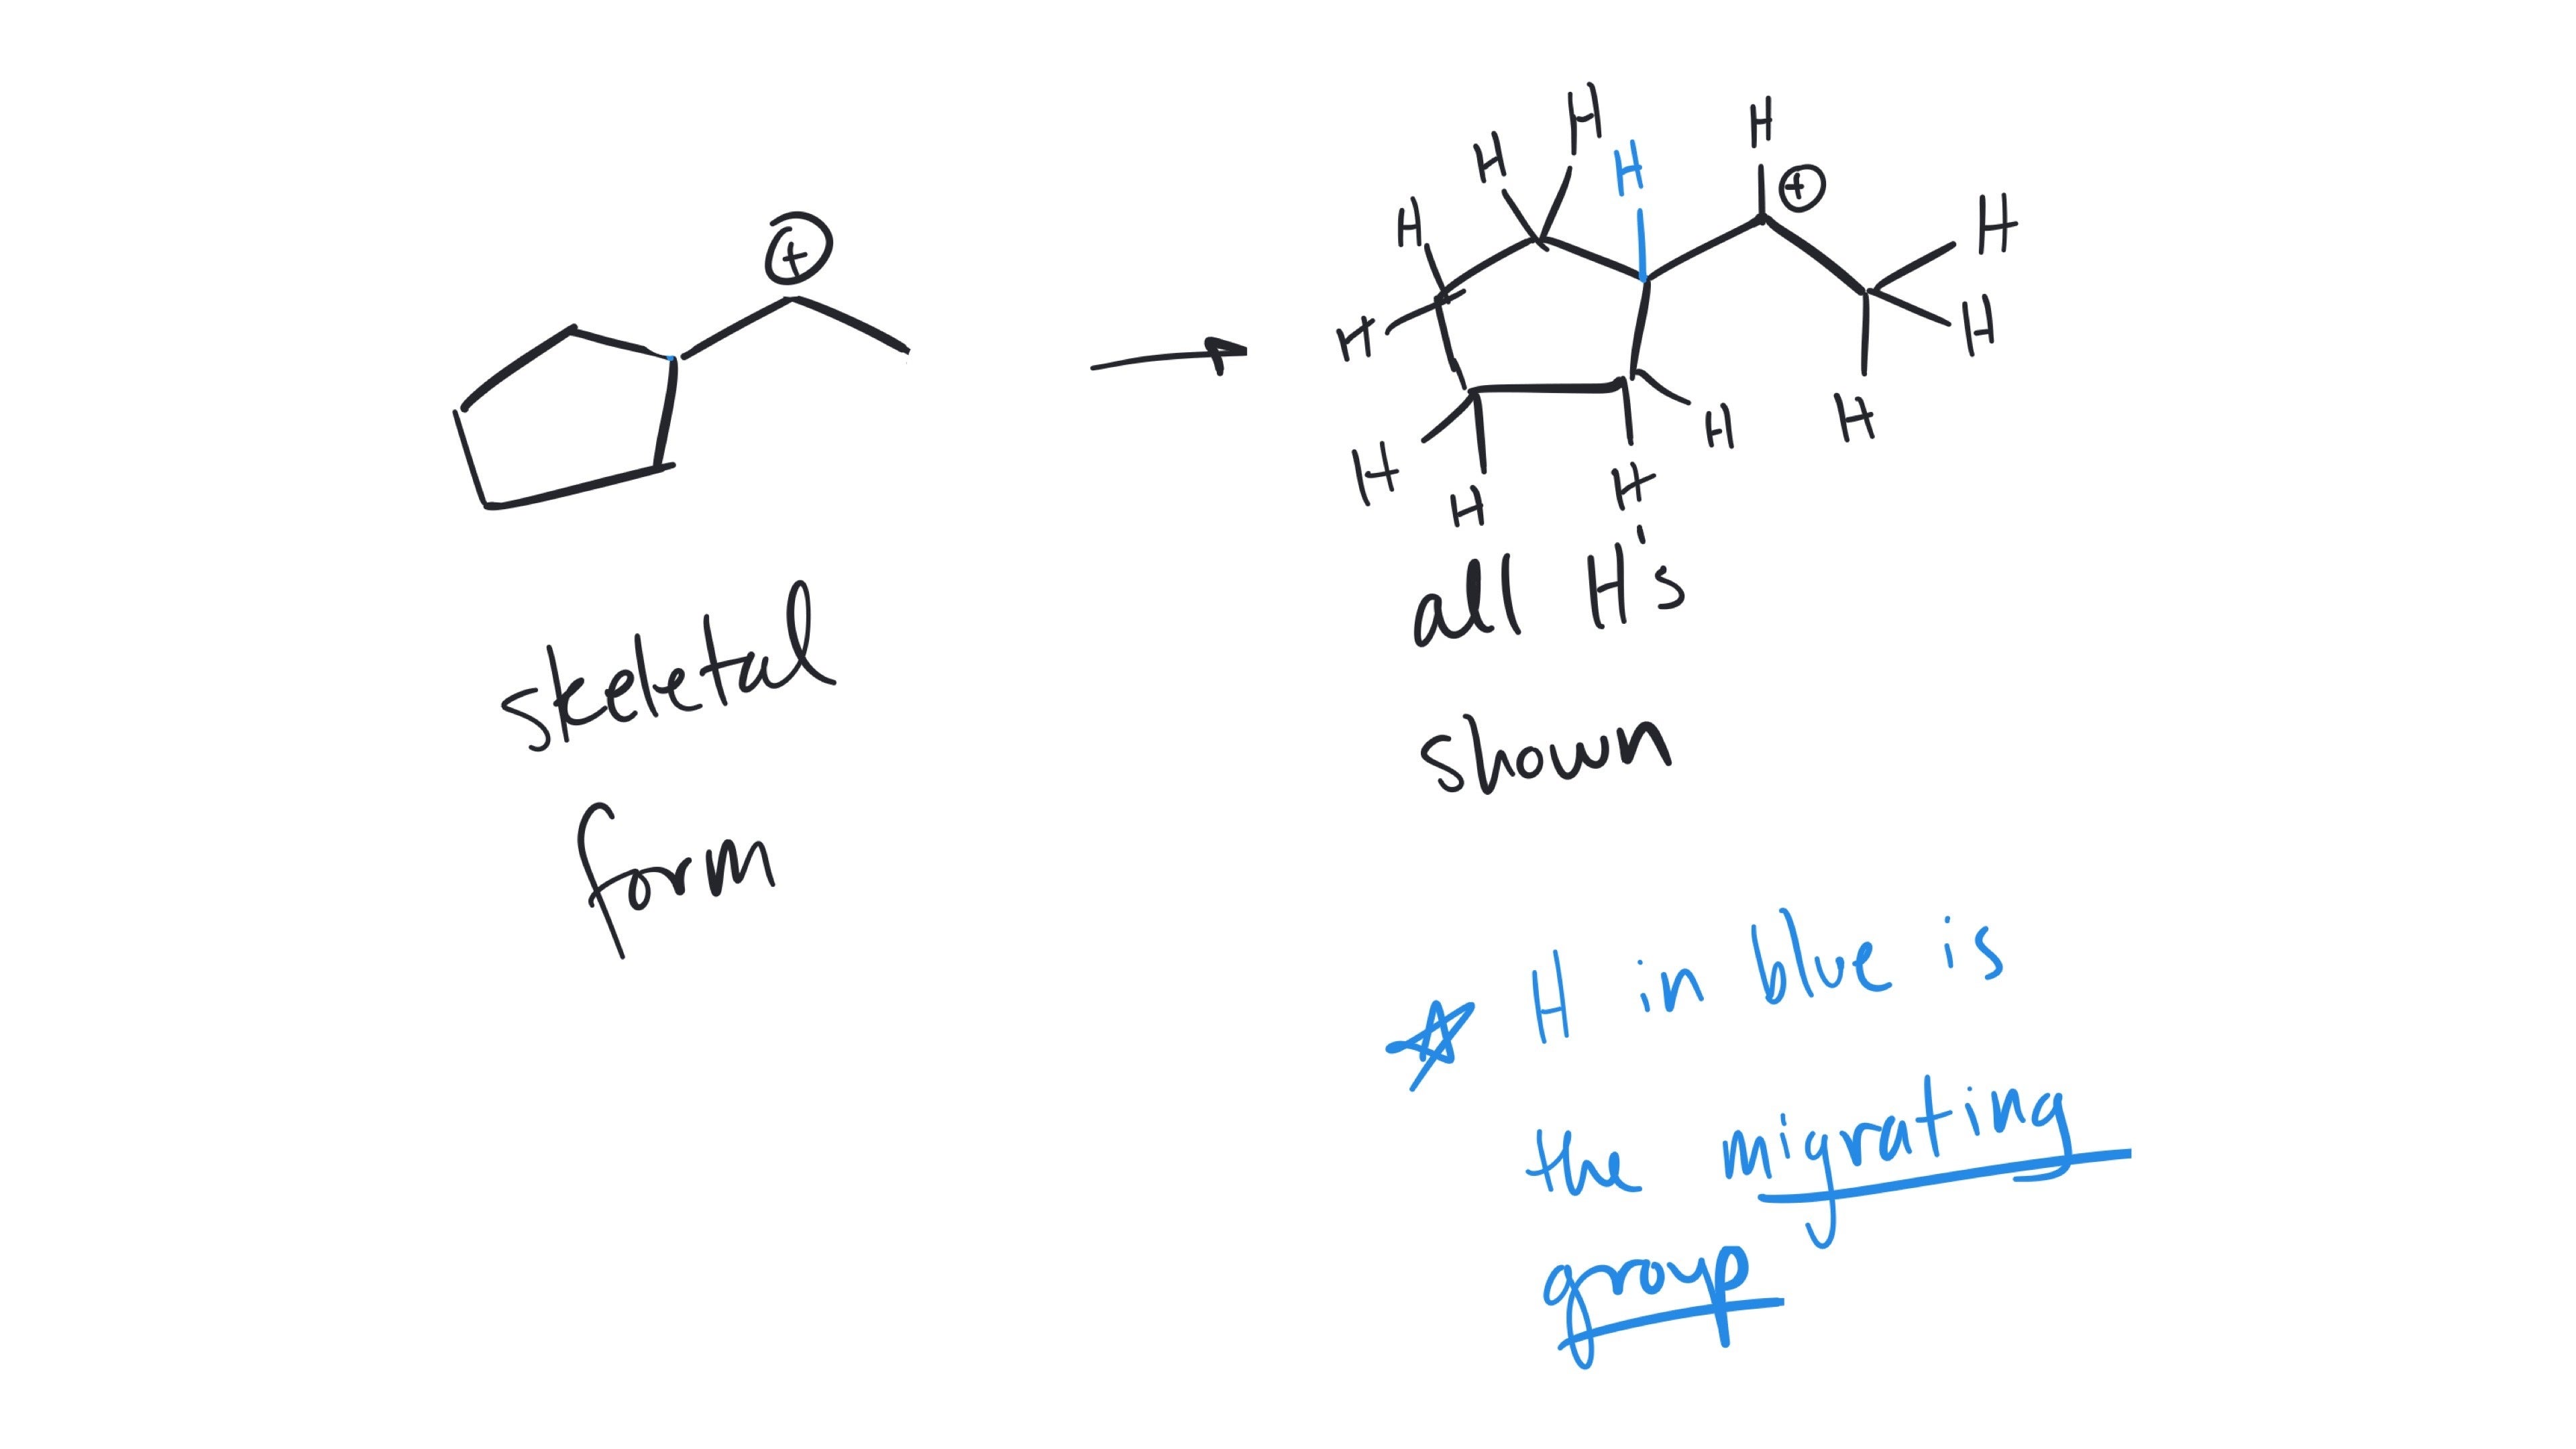 ⊕
skeletal
form
H
H
H
H
⊕
H
H
H
H
H
H
H
H
H
H
all H's
shown
☆ H in blue is
the migrating
group